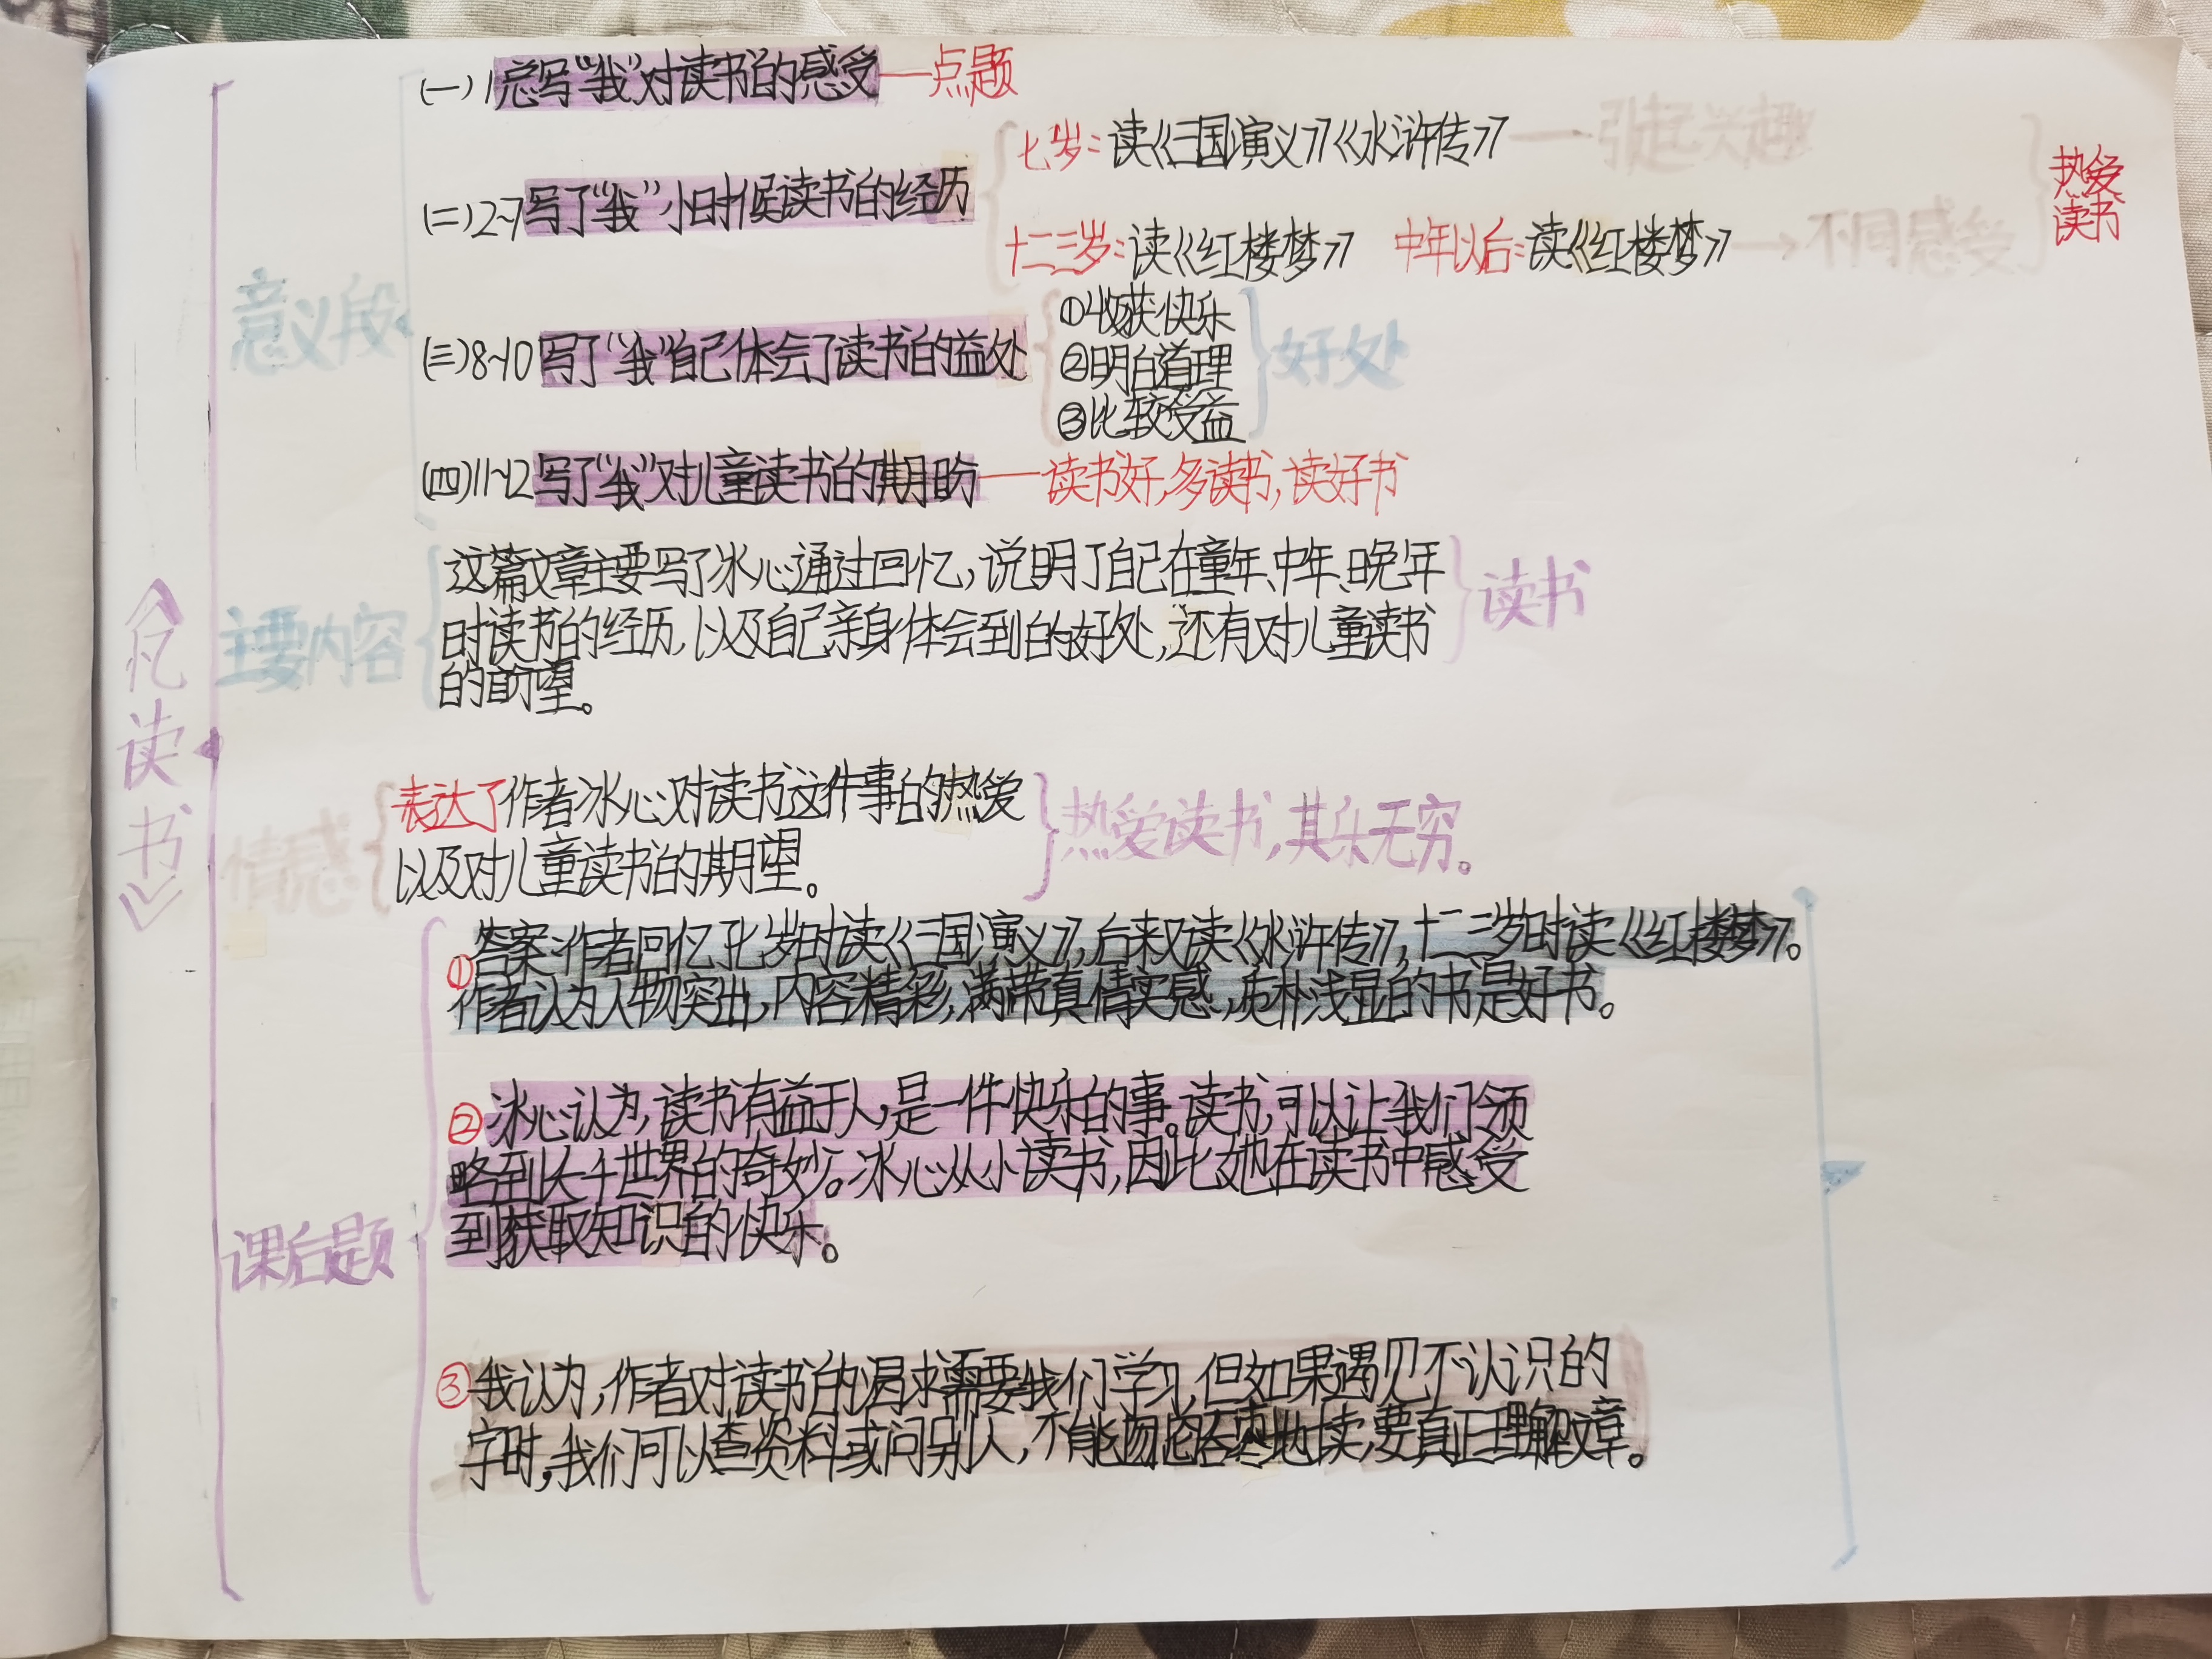 《忆读书》
意义段
(一)1总写“我”对读书的感受——点题
(二)2~7写了“我”小时候读书的经历
七岁:读《三国演义》《水浒传》——引起兴趣
十二三岁:读《红楼梦》 中年以后:读《红楼梦》→不同感受
热爱
读书
(三)8~10写了“我”自己体会了读书的益处
①收获快乐
②明白道理
③比较受益
好处
(四)11~12写了“我”对儿童读书的期盼——读书好,多读书,读好书
主要内容
这篇文章主要写了冰心通过回忆,说明了自己在童年、中年、晚年
时读书的经历,以及自己亲身体会到的好处,还有对儿童读书
的盼望。
读书
情感
表达了作者冰心对读书这件事的热爱
以及对儿童读书的期望。
热爱读书,其乐无穷。
课后题
①答案:作者回忆七岁时读《三国演义》,后来又读《水浒传》,十二三岁时读《红楼梦》。
作者认为人物突出,内容精彩,满带真情实感,质朴浅显的书是好书。
②冰心认为,读书有益于人,是一件快乐的事。读书,可以让我们领
略到大千世界的奇妙。冰心从小读书,因此她在读书中感受
到获取知识的快乐。
③我认为,作者对读书的渴求需要我们学习,但如果遇见不认识的
字时,我们可以查资料或问别人,不能囫囵吞枣地读,要真正理解文章。